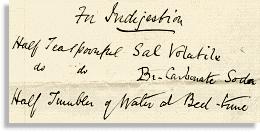 For Indigestion
Half Teaspoonful Sal Volatile
do do Bi-Carbonate Soda
Half Tumbler of Water at Bed-time